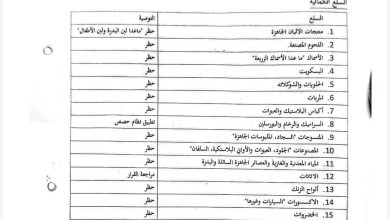 السلع الكمالية
السلع التوصية
1. منتجات الألبان الجاهزة حظر "ماعدا لبن البدرة ولبن الأطفال"
2. اللحوم المصنعة. حظر
3. الأسماك "ما عدا الأسماك الزريعة" حظر
4. البسكويت حظر
5. الحلويات والشوكلاته حظر
6. المربات حظر
7. أكياس البلاستيك والعبوات حظر
8. السيراميك والرخام والبورسلين تطبيق نظام حصص
9. المنسوجات "السجاد، الملبوسات الجاهزة" حظر
10. المصنوعات "الجلود، العبوات والأواني البلاستيكية، السلفان" حظر
11. المياه المعدنية والغازية والعصائر الجاهزة السائلة والبدرة حظر
12. الاثاثات مراجعة القرار
13. ألواح الزنك حظر
14. الاكسسورات "السيارات وغيرها" حظر
15. الخضروات حظر